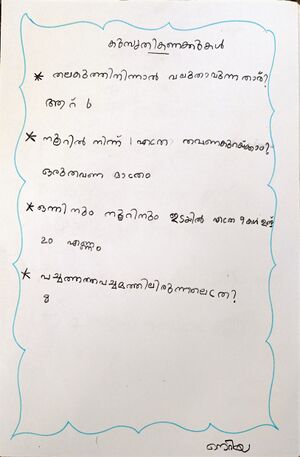 കുസൃതികണക്കുകൾ
* തലകുത്തിനിന്നാൽ വലുതാവുന്നതാര്?
ആറ് 6
* നൂറിൽ നിന്ന് 1 എത്ര തവണകുറയ്ക്കാം?
ഒരുതവണ മാത്രം
* ഒന്നിനും നൂറിനും ഇടകിൽ എത്ര 9കൾ ഉണ്ട്
20 എണ്ണം
* പച്ചത്തത്തപച്ചമത്തിലിരുന്നാലെത്ര?
8